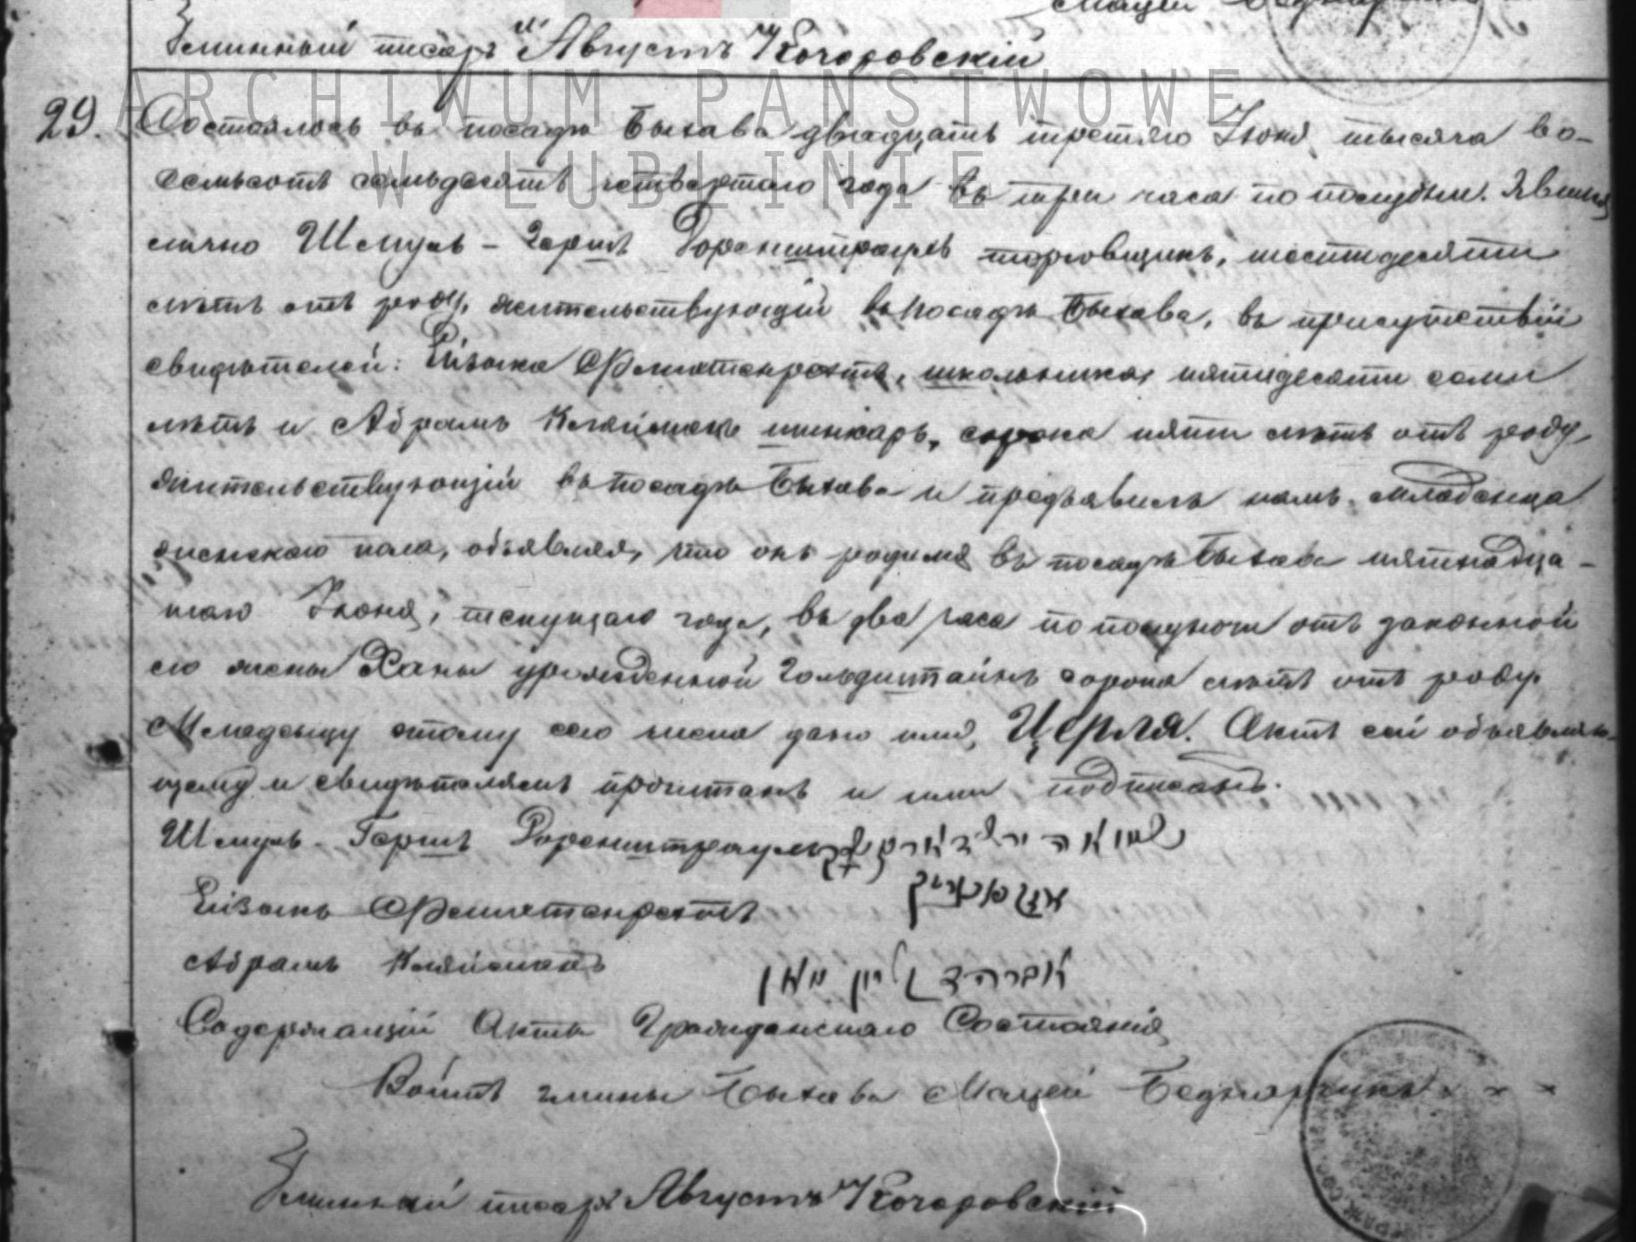 Мацей Беднарчикъ
Гминный писарь Августъ Кочоровскій
ARCHIWUM PAŃSTWOWE
W LUBLINIE
29. Состоялось въ посадѣ Быхава двадцать третяго Іюня тысяча во-
семьсотъ семьдесятъ четвертаго года въ три часа по полудни. Явился
лично Шмуль-Гершъ Доренштраухъ торговщикъ, шестидесяти
лѣтъ отъ роду, жительствующій въ посадѣ Быхава, въ присутствіи
свидѣтелей: Ейзыка школьника, пятидесяти семи
лѣтъ и Абрамъ Кляйманъ шинкарь, сорока пяти лѣтъ отъ роду,
жительствующій въ посадѣ Быхава и предъявилъ намъ младенца
женскаго пола, объявляя, что онъ родился въ посадѣ Быхава пятнадца-
таго Іюня, текущаго года, въ два часа по полуночи отъ законной
его жены Ханы урожденной Гольдштайнъ сорока лѣтъ отъ роду.
Младенцу этому сего числа дано имя, Церля. Актъ сей объявляю-
щему и свидѣтелямъ прочитанъ и ими подписанъ.
Шмуль-Гершъ Доренштраухъ
Ейзыкъ
Абрамъ Кляйманъ אברהם קליין מאן
Содержащій Акты Гражданскаго Состоянія
Войтъ гмины Быхава Мацей Беднарчикъ
Гминный писарь Августъ Кочоровскій